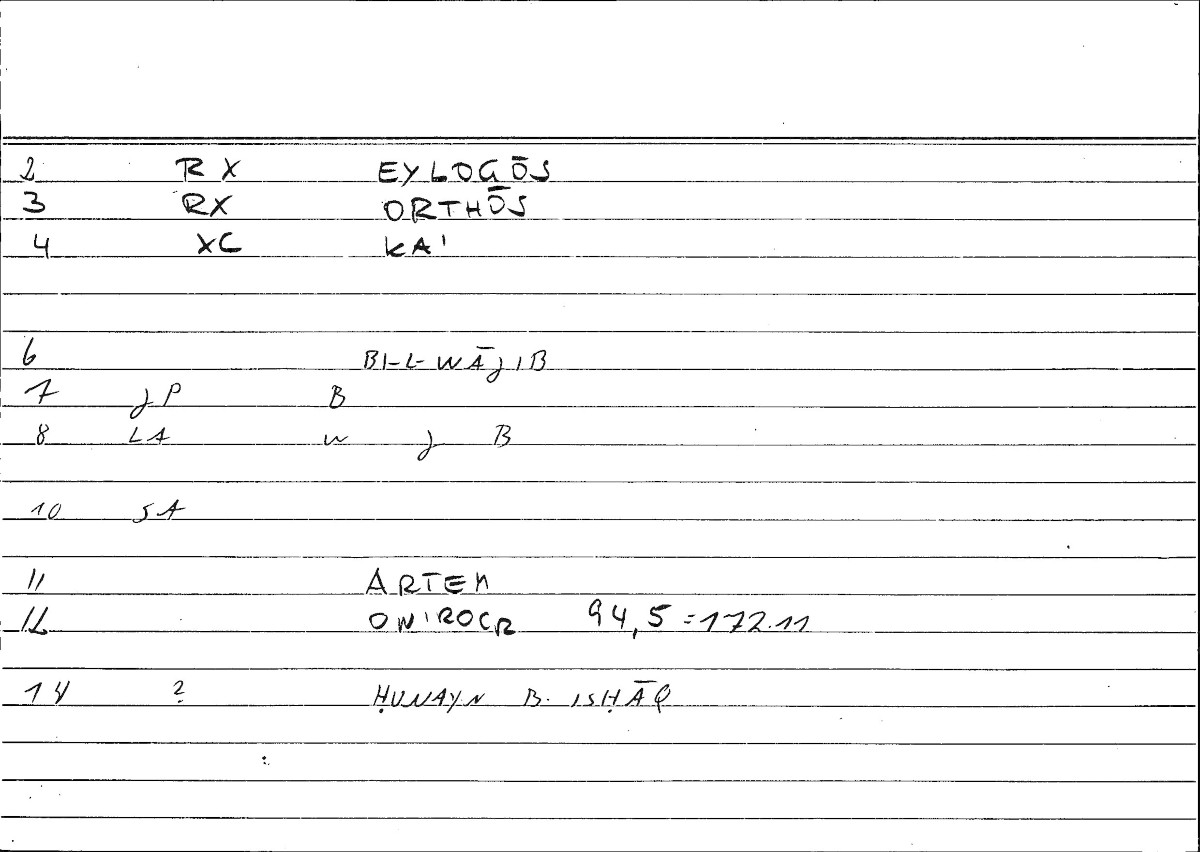 2 RX EYLOGŌS
3 RX ORTHŌS
4 XC KAI
6 BI-L-WĀjIB
7 jP B
8 LA w j B
10 SA
11 ARTEM
12 ONIROCR 94,5=172.11
14 ? ḤUNAYN B. ISḤĀQ